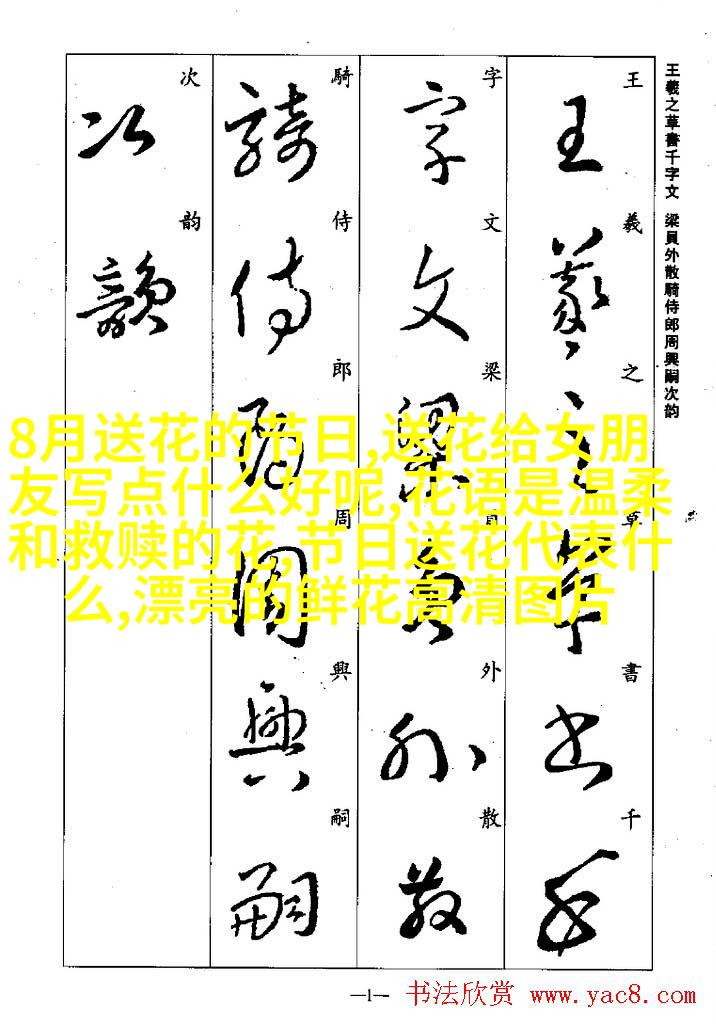 王羲之草書千字文 梁員外散騎侍郎周興嗣次韵
王羲之草書千
王羲之草書千
字文梁員外散
字文梁員外散
騎侍郎周興嗣
騎侍郎周興嗣
次韵
次韻
8月送花的节日,送花给女朋
友写点什么好呢,花语是温柔
和救赎的花,节日送花代表什
么,漂亮的鲜花高清图片
—1—
书法欣赏 www.yac8.com